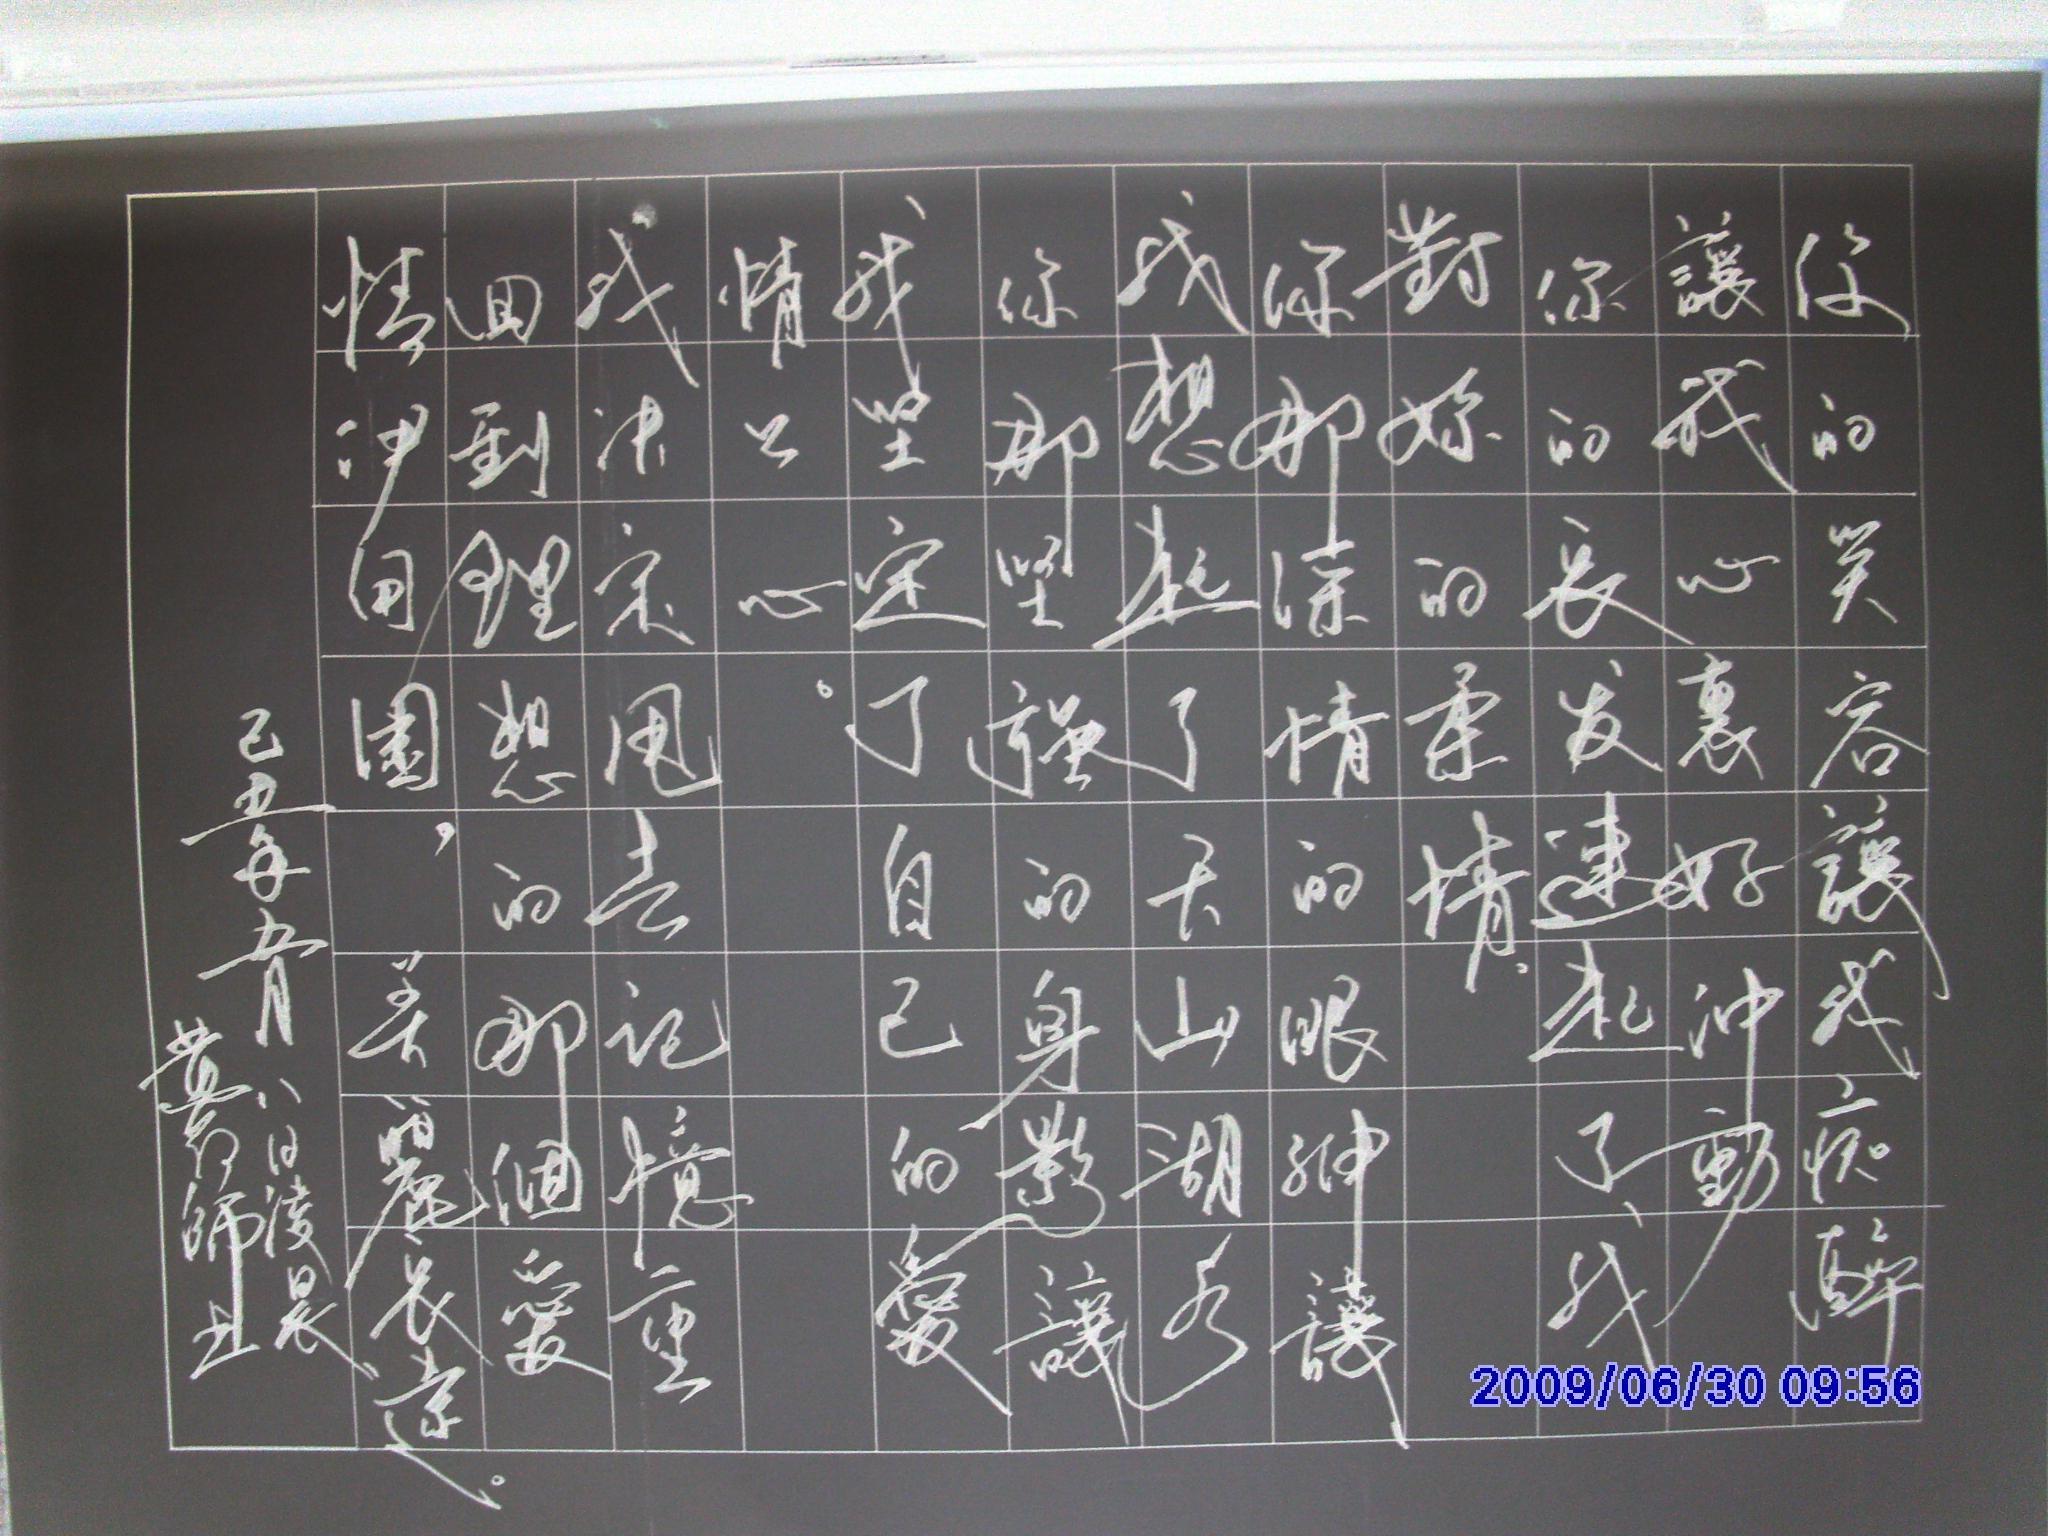 你的笑容讓我痴醉
讓我心裏好沖動
你的长发迷起了我
對妳的柔情.
你那深情的眼神讓
我想起了天山湖水
你那坚强的身影讓
我坚定了自己的爱
情公心。
我决定甩去記憶重
回到理想的那個爱
情伊甸園,美麗长
己丑年五月八日凌晨
黄
師